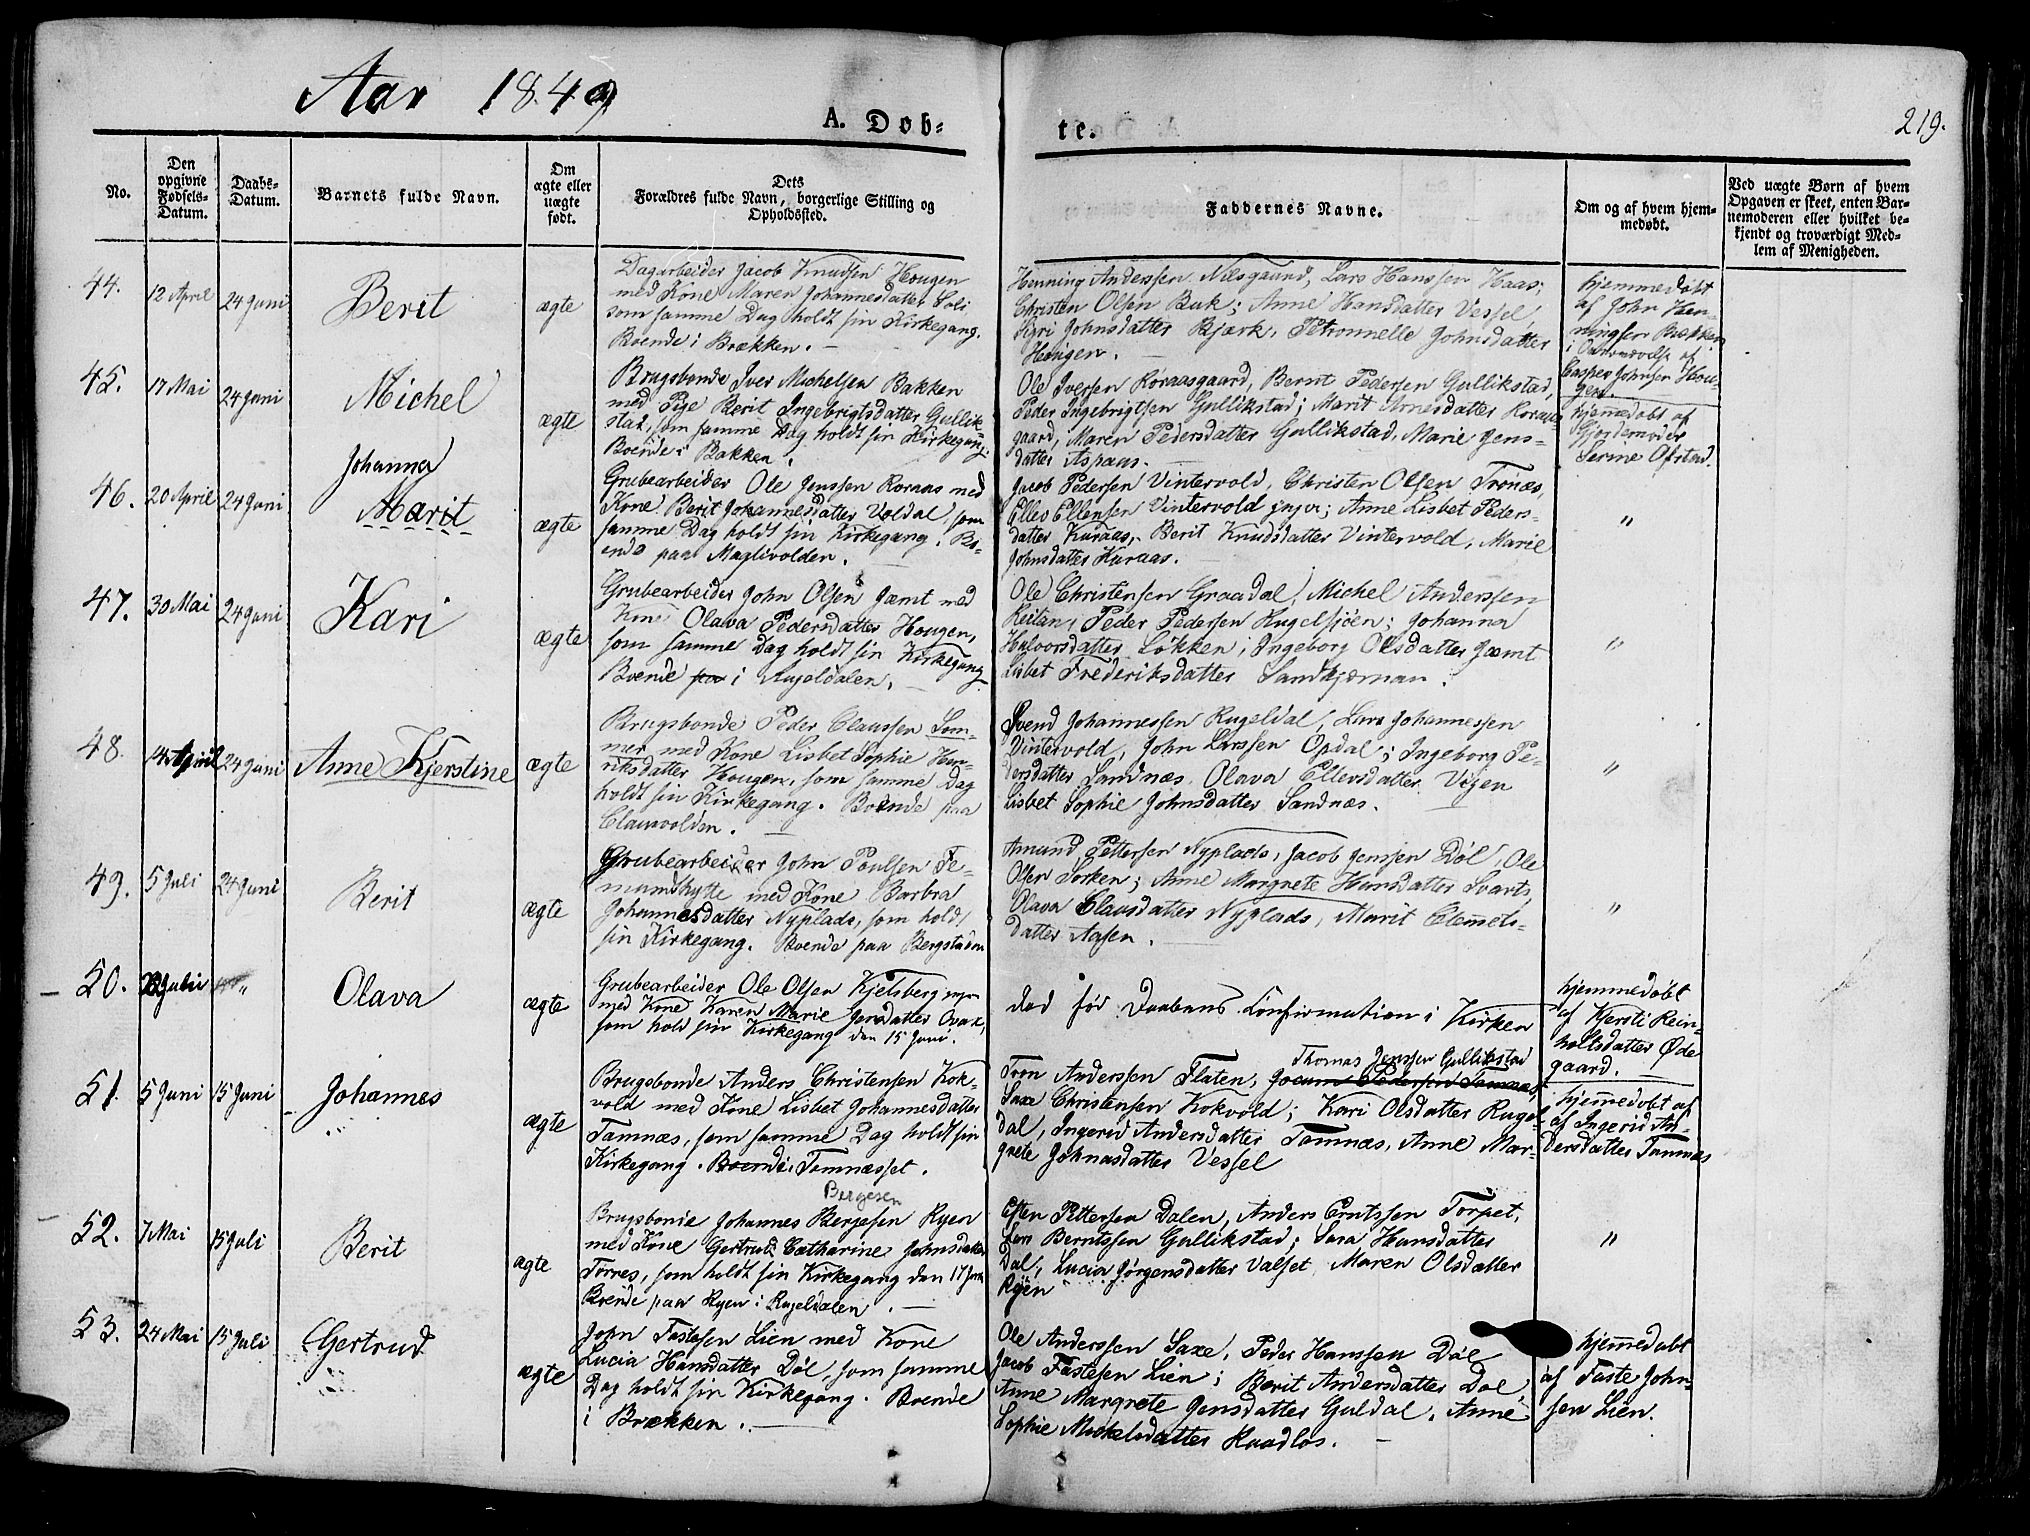 Aar 1849
A. Døb-
te.
219.
No.
Den opgivne Fødsels-Datum.
Daabs-Datum.
Barnets fulde Navn.
Om ægte eller uægte født.
Dets
Forældres fulde Navn, borgerlige Stilling og
Opholdssted.
Faddernes Navne.
Om og af hvem hjem-
medøbt.
Ved uægte Børn af hvem
Opgaven er skeet, enten Bar-
nemoderen eller hvilket be-
kjendt og troværdigt Med-
lem af Menigheden.
44.
12 April
24 Juni
Berit
ægte
Dagarbeider Jacob Knudsen Hougen
med Kone Maren Johannesdatter Soli
som samme Dag holdt sin Kirkegang.
Boende i Brækken.
Henning Anderssen Nilsgaard, Lars Hanssen Haas;
Christen Olsen Buk; Anne Hansdatter Vessel,
Siri Johnsdatter Bjørk, Petronnelle Johnsdatter
Hougen.
hjemmedøbt
af John Hen-
ningsen Brækken
i Overværelse af
Casper Johnsen Hou-
gen.
45.
17 Mai
24 Juni
Michel
ægte
Brugsbonde Iver Michelsen Bakken
med Pige Berit Ingebrigtsdatter Gullik-
stad, som samme Dag holdt sin Kirkegang.
Boende i Bakken.
Ole Iversen Røraasgaard, Bernt Pedersen Gullikstad,
Peder Ingebrigtsen Gullikstad; Marit Arnesdatter Røraas-
gaard, Maren Pedersdatter Gullikstad, Marie Jens-
datter Aspaas.
hjemmedøbt af
Gjordemoder
Serine Ofstad.
46.
20 April
24 Juni
Johanna
Marit
ægte
Grubearbeider Ole Jenssen Roraas med
Kone Berit Johannesdatter Voldal, som
samme Dag holdt sin Kirkegang. Bo-
ende paa Maglivolden.
Jacob Pedersen Vintervold, Christen Olsen Tronæs,
Ellev Ellevsen Vintervold junior; Anne Lisbet Peders-
datter Kuraas, Berit Knudsdatter Vintervold, Marie
Johnsdatter Kuraas.
"
47.
30 Mai
24 Juni
Kari
ægte
Grubearbeider John Olsen Jæmt med
Kone Olava Pedersdatter Hougen,
som samme Dag holdt sin Kirkegang
Boende paa i Rugeldalen.
Ole Christensen Graadal, Michel Anderssen
Reitan, Peder Pedersen Rugelsjøen; Johanna
Halvorsdatter Løkken, Ingeborg Olsdatter Jæmt
Lisbet Frederiksdatter Sandkjernan.
"
48.
14 April
24 Juni
Anne Kjerstine
ægte
Brugsbonde Peder Claussen Søm-
mer med Kone Lisbet Sophie Hen-
riksdatter Hougen, som samme Dag
holdt sin Kirkegang. Boende paa
Clausvolden.
Svend Johannessen Rugeldal, Lars Johannessen
Vintervold, John Larssen Opdal; Ingeborg Pe-
dersdatter Sandnæs, Olava Ellevsdatter Vigen
Lisbet Sophie Johnsdatter Sandnæs.
"
49.
5 Juli
24 Juni
Berit
ægte
Grubearbeider John Poulsen Fe-
mundshytte med Kone Barbra
Johannesdatter Nyplads, som holdt
sin Kirkegang. Boende paa Bergstaden
Amund Pettersen Nyplads, Jacob Jenssen Døl, Ole
Olsen Sorken; Anne Margrete Hansdatter Svart,
Olava Clausdatter Nyplads, Marit Clemets-
datter Aasen.
"
50.
Juli
"
Olava
ægte
Grubearbeider Ole Olsen Kjelsberg
med Kone Karen Marie Jensdatter
som holdt sin Kirkegang den 15 Juni.
død før Daabens Confirmation i Kirken
hjemmedøbt
af Kjersti Rein-
holtsdatter Øde
gaard.
51.
5 Juni
15 Juni
Johannes
ægte
Brugsbonde Anders Christensen Kok-
vold med Kone Lisbet Johannesdatter
Tamnæs, som samme Dag holdt sin
Kirkegang. Boende i Tamnæsset.
Thomas Jenssen Gullikstad
Tron Anderssen Flaten, Tamnæs,
Saxe Christensen Kokvold; Kari Olsdatter Rugel-
dal, Ingerid Andersdatter Tamnæs, Anne Mar-
grete Johnasdatter Vessel
hjemmedøbt af
af Ingerid An-
dersdatter Tamnæs
52.
7 Mai
15 Juli
Berit
ægte
Bergesen
Brugsbonde Johannes Bergesen Ryen
med Kone Gertrud Catharine Johnsdatter
Torres, som holdt sin Kirkegang den 17 Juni
Boende paa Ryen i Rugeldalen.
Esten Pettersen Dalen, Anders Erntssen Torpet,
Berntssen Gullikstad; Sara Hansdatter
Dal, Lucia Jørgensdatter Valset, Maren Olsdatter
Ryen
"
53.
24 Mai
15 Juli
Gertrud
ægte
John Fastesen Lien med Kone
Lucia Hansdatter Døl, som samme
Dag holdt sin Kirkegang. Boende
i Brækken.
Ole Anderssen Saxe, Peder Hanssen Døl
Jacob Fastesen Lien; Berit Andersdatter Døl
Anne Margrete Jensdatter Guldal, Anne
Sophie Mickelsdatter Haadløs.
hjemmedøbt
af Faste John-
sen Lien.